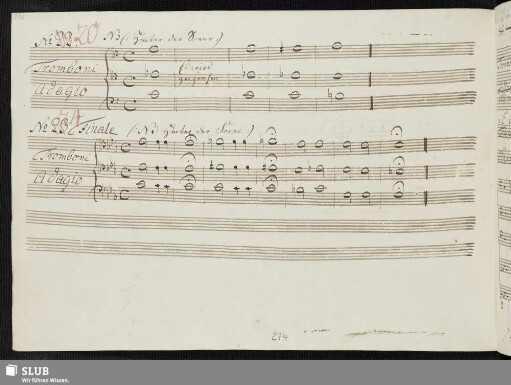 20 NB (: Hinter der Scene :)
Tromboni
Adagio
Finale (: NB Hinter der Scene :)
Tromboni
Adagio
274
SLUB
Wir führen Wissen.